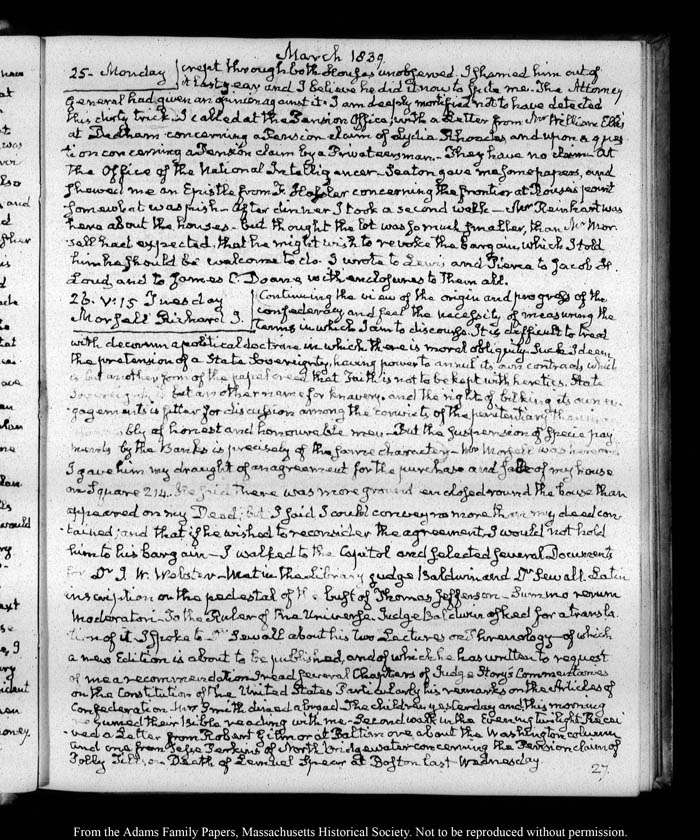 March 1839
25- Monday crept through both Houses unobserved. I shamed him out of
it last year and I believe he did it now to spite me. The Attorney
General had given an opinion against it. I am deeply mortified not to have detected
this dirty trick. I called at the Pension Office, with a Letter from Mr William Ellis
at Dedham concerning a Pension claim of Lydia Rhoades and upon a ques
tion concerning a Pension claim by a Privateersman. They have no claim. At
the Office of the National Intelligencer Seaton gave me some papers, and
shewed me an Epistle from F. Hassler concerning the frontier at Rouses point
somewhat waspish- After dinner I took a second walk- Mr Reinhart was
here about the houses- but thought the lot was so much smaller, than Mr Mor
sell had expected, that he might wish to revoke the bargain, which I told
him he should be welcome to do. I wrote to Lewis and Pierce to Jacob H.
Loud, and to James C. Doane with enclosures to them all.
26. V:15 Tuesday Continuing the view of the origin and progress of the
Morfell Richard J. confederacy, and feel the necessity of measuring the
terms in which I am to discourse. It is difficult to tread
with decorum a political doctrine in which there is moral obliquity. Such I deem
the pretension of a State Sovereignty, having power to annul its own contracts which
is but another form of the papal creed that Faith is not to be kept with heretics. State
Sovereignty is but another name for knavery. and the right of bilking its own en-
gagements is fitter for discussion among the convicts of the penitentiary than in
bly of honest and honourable men- But the suspension of Specie pay
ments by the Banks is precisely of the same character- Mr Morfell was here and
I gave him my draught of an agreement for the purchase and sale of my house
on Square 214. He said there was more ground enclosed round the house than
appeared on my Deed; but I said I could convey no more than my deed con-
tained; and that if he wished to reconsider the agreement, I would not hold
him to his bargain- I walked to the Capitol and selected several Documents
for Dr J. W. Webster- Met in the Library Judge Baldwin and Dr Sewall. Latin
inscription on the pedestal of the bust of Thomas Jefferson- Summo rerum
Moderatori- To the Ruler of the Universe. Judge Baldwin asked for a transla
tion of it. I spoke to Dr Sewall about his two Lectures on Phrenology- of which
a new Edition is about to be published, and of which he has written to request
of me a recommendation. I read several Chapters of Judge Story's Commentaries
on the Constitution of the United States Particularly his remarks on the Articles of
Confederation. Mrs Smith dined abroad. The children yesterday and this morning
resumed their Bible reading with me- Second walk in the Evening twilight. Recei
ved a Letter from Robert Gilmor at Baltimore about the Washington column
and one from Jesse Perkins of North Bridgewater concerning the Pension claim of
Polly Death of Lemuel Spear at Boston last Wednesday.
27.
From the Adams Family Papers, Massachusetts Historical Society. Not to be reproduced without permission.